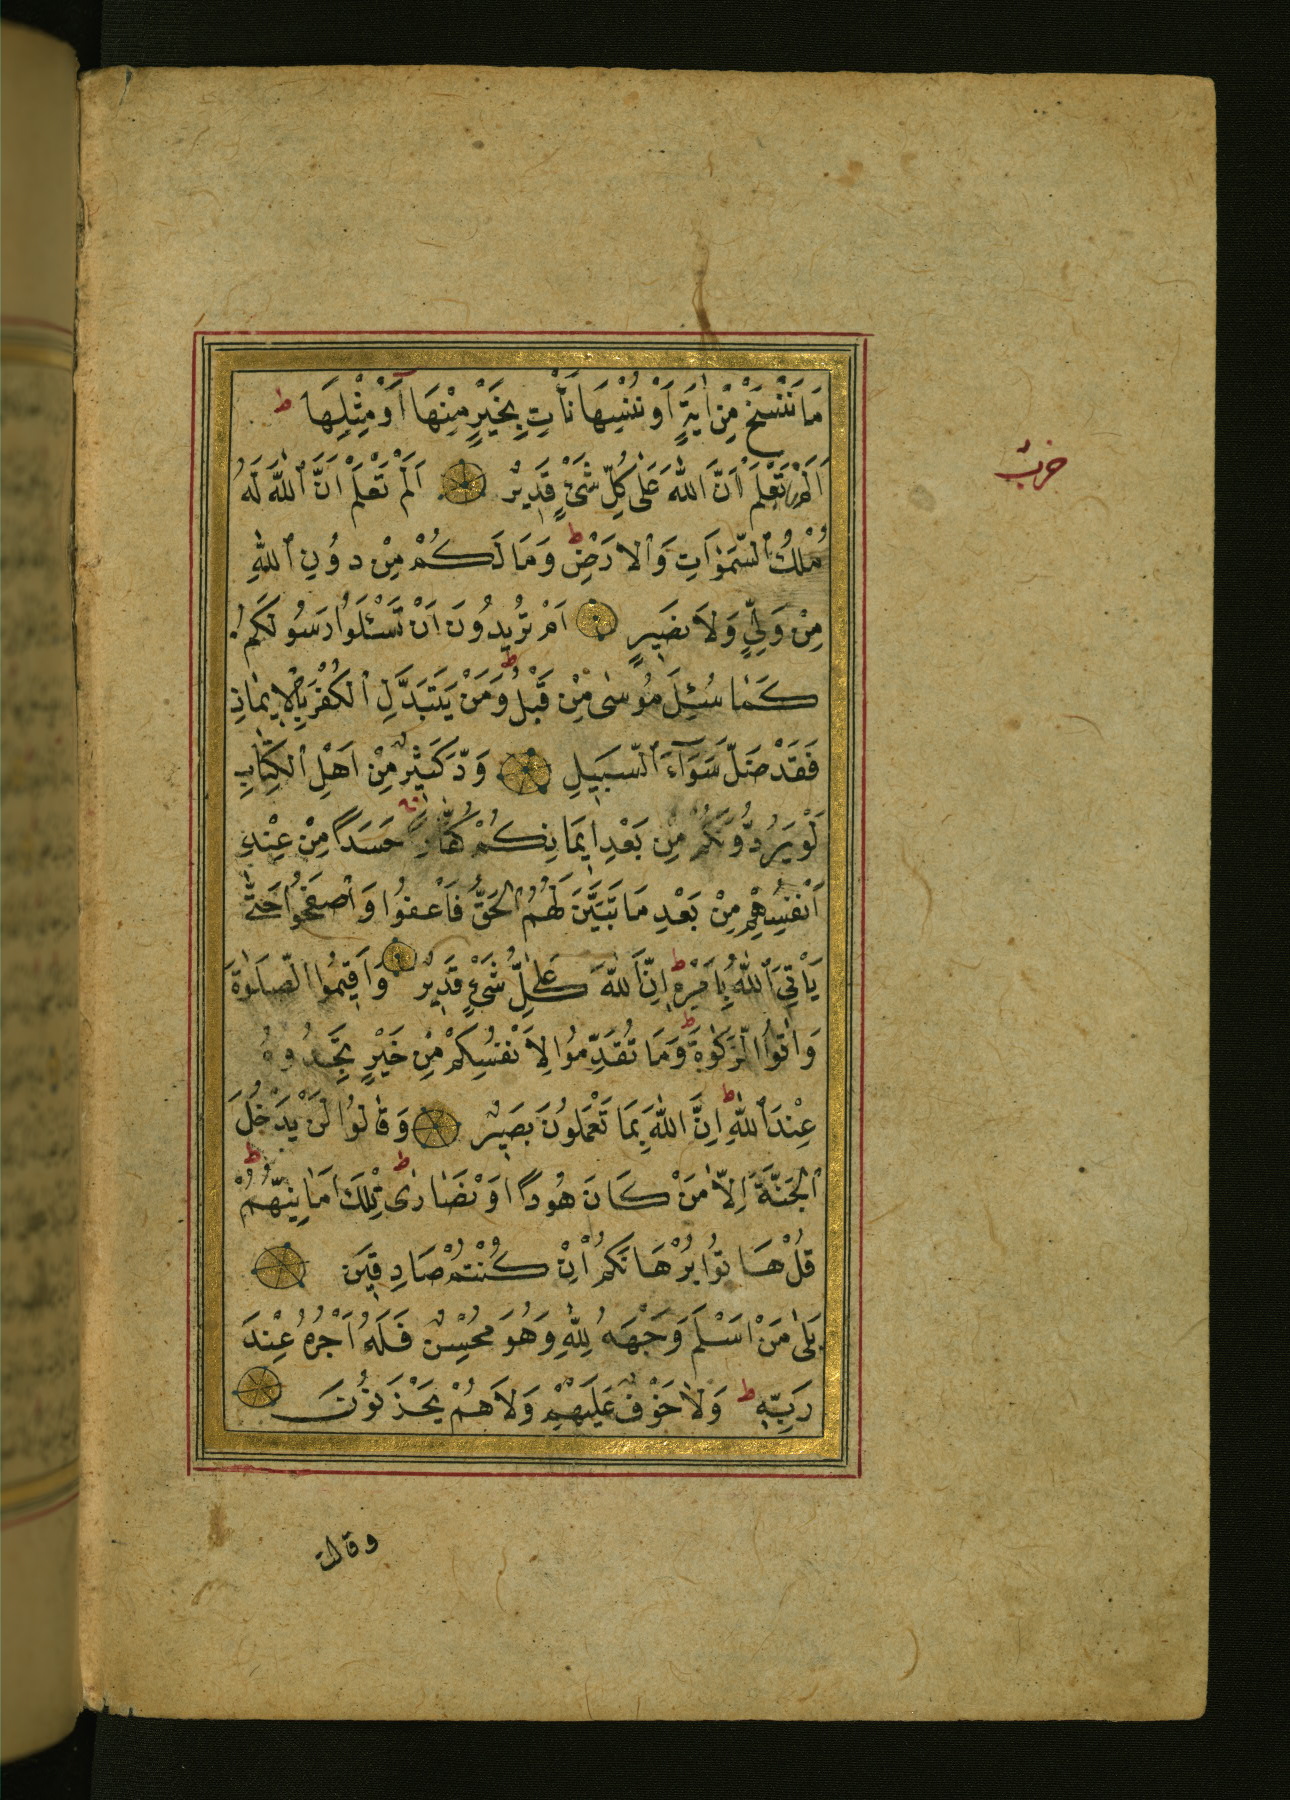 مَا نَنْسَخْ مِنْ اٰيَةٍ اَوْ نُنْسِهَا نَأْتِ بِخَيْرٍ مِنْهَا اَوْ مِثْلِهَا ط
حزب
اَلَمْ تَعْلَمْ اَنَّ اللّٰهَ عَلٰى كُلِّ شَىْءٍ قَدِيرٌ اَلَمْ تَعْلَمْ اَنَّ اللّٰهَ لَهُ
مُلْكُ السَّمٰوَاتِ وَالْاَرْضِ ط وَمَا لَكُمْ مِنْ دُونِ اللّٰهِ
مِنْ وَلِىٍّ وَلَا نَصِيرٍ اَمْ تُرِيدُونَ اَنْ تَسْـَٔلُوا رَسُولَكُمْ
كَمَا سُئِلَ مُوسٰى مِنْ قَبْلُ ط وَمَنْ يَتَبَدَّلِ الْكُفْرَ بِالْاِيمَانِ
فَقَدْ ضَلَّ سَوَاءَ السَّبِيلِ وَدَّ كَثِيرٌ مِنْ اَهْلِ الْكِتَابِ
لَوْ يَرُدُّونَكُمْ مِنْ بَعْدِ اِيمَانِكُمْ كُفَّارًا حَسَدًا مِنْ عِنْدِ
اَنْفُسِهِمْ مِنْ بَعْدِ مَا تَبَيَّنَ لَهُمُ الْحَقُّ فَاعْفُوا وَاصْفَحُوا حَتّٰى
يَأْتِىَ اللّٰهُ بِاَمْرِهِ ط اِنَّ اللّٰهَ عَلٰى كُلِّ شَىْءٍ قَدِيرٌ وَاَقِيمُوا الصَّلٰوةَ
وَاٰتُوا الزَّكٰوةَ ط وَمَا تُقَدِّمُوا لِاَنْفُسِكُمْ مِنْ خَيْرٍ تَجِدُوهُ
عِنْدَ اللّٰهِ ط اِنَّ اللّٰهَ بِمَا تَعْمَلُونَ بَصِيرٌ وَقَالُوا لَنْ يَدْخُلَ
الْجَنَّةَ اِلَّا مَنْ كَانَ هُودًا اَوْ نَصَارٰى ط تِلْكَ اَمَانِيُّهُمْ ط
قُلْ هَاتُوا بُرْهَانَكُمْ اِنْ كُنْتُمْ صَادِقِينَ
بَلٰى مَنْ اَسْلَمَ وَجْهَهُ لِلّٰهِ وَهُوَ مُحْسِنٌ فَلَهُ اَجْرُهُ عِنْدَ
رَبِّهِ ط وَلَا خَوْفٌ عَلَيْهِمْ وَلَا هُمْ يَحْزَنُونَ
وقالت